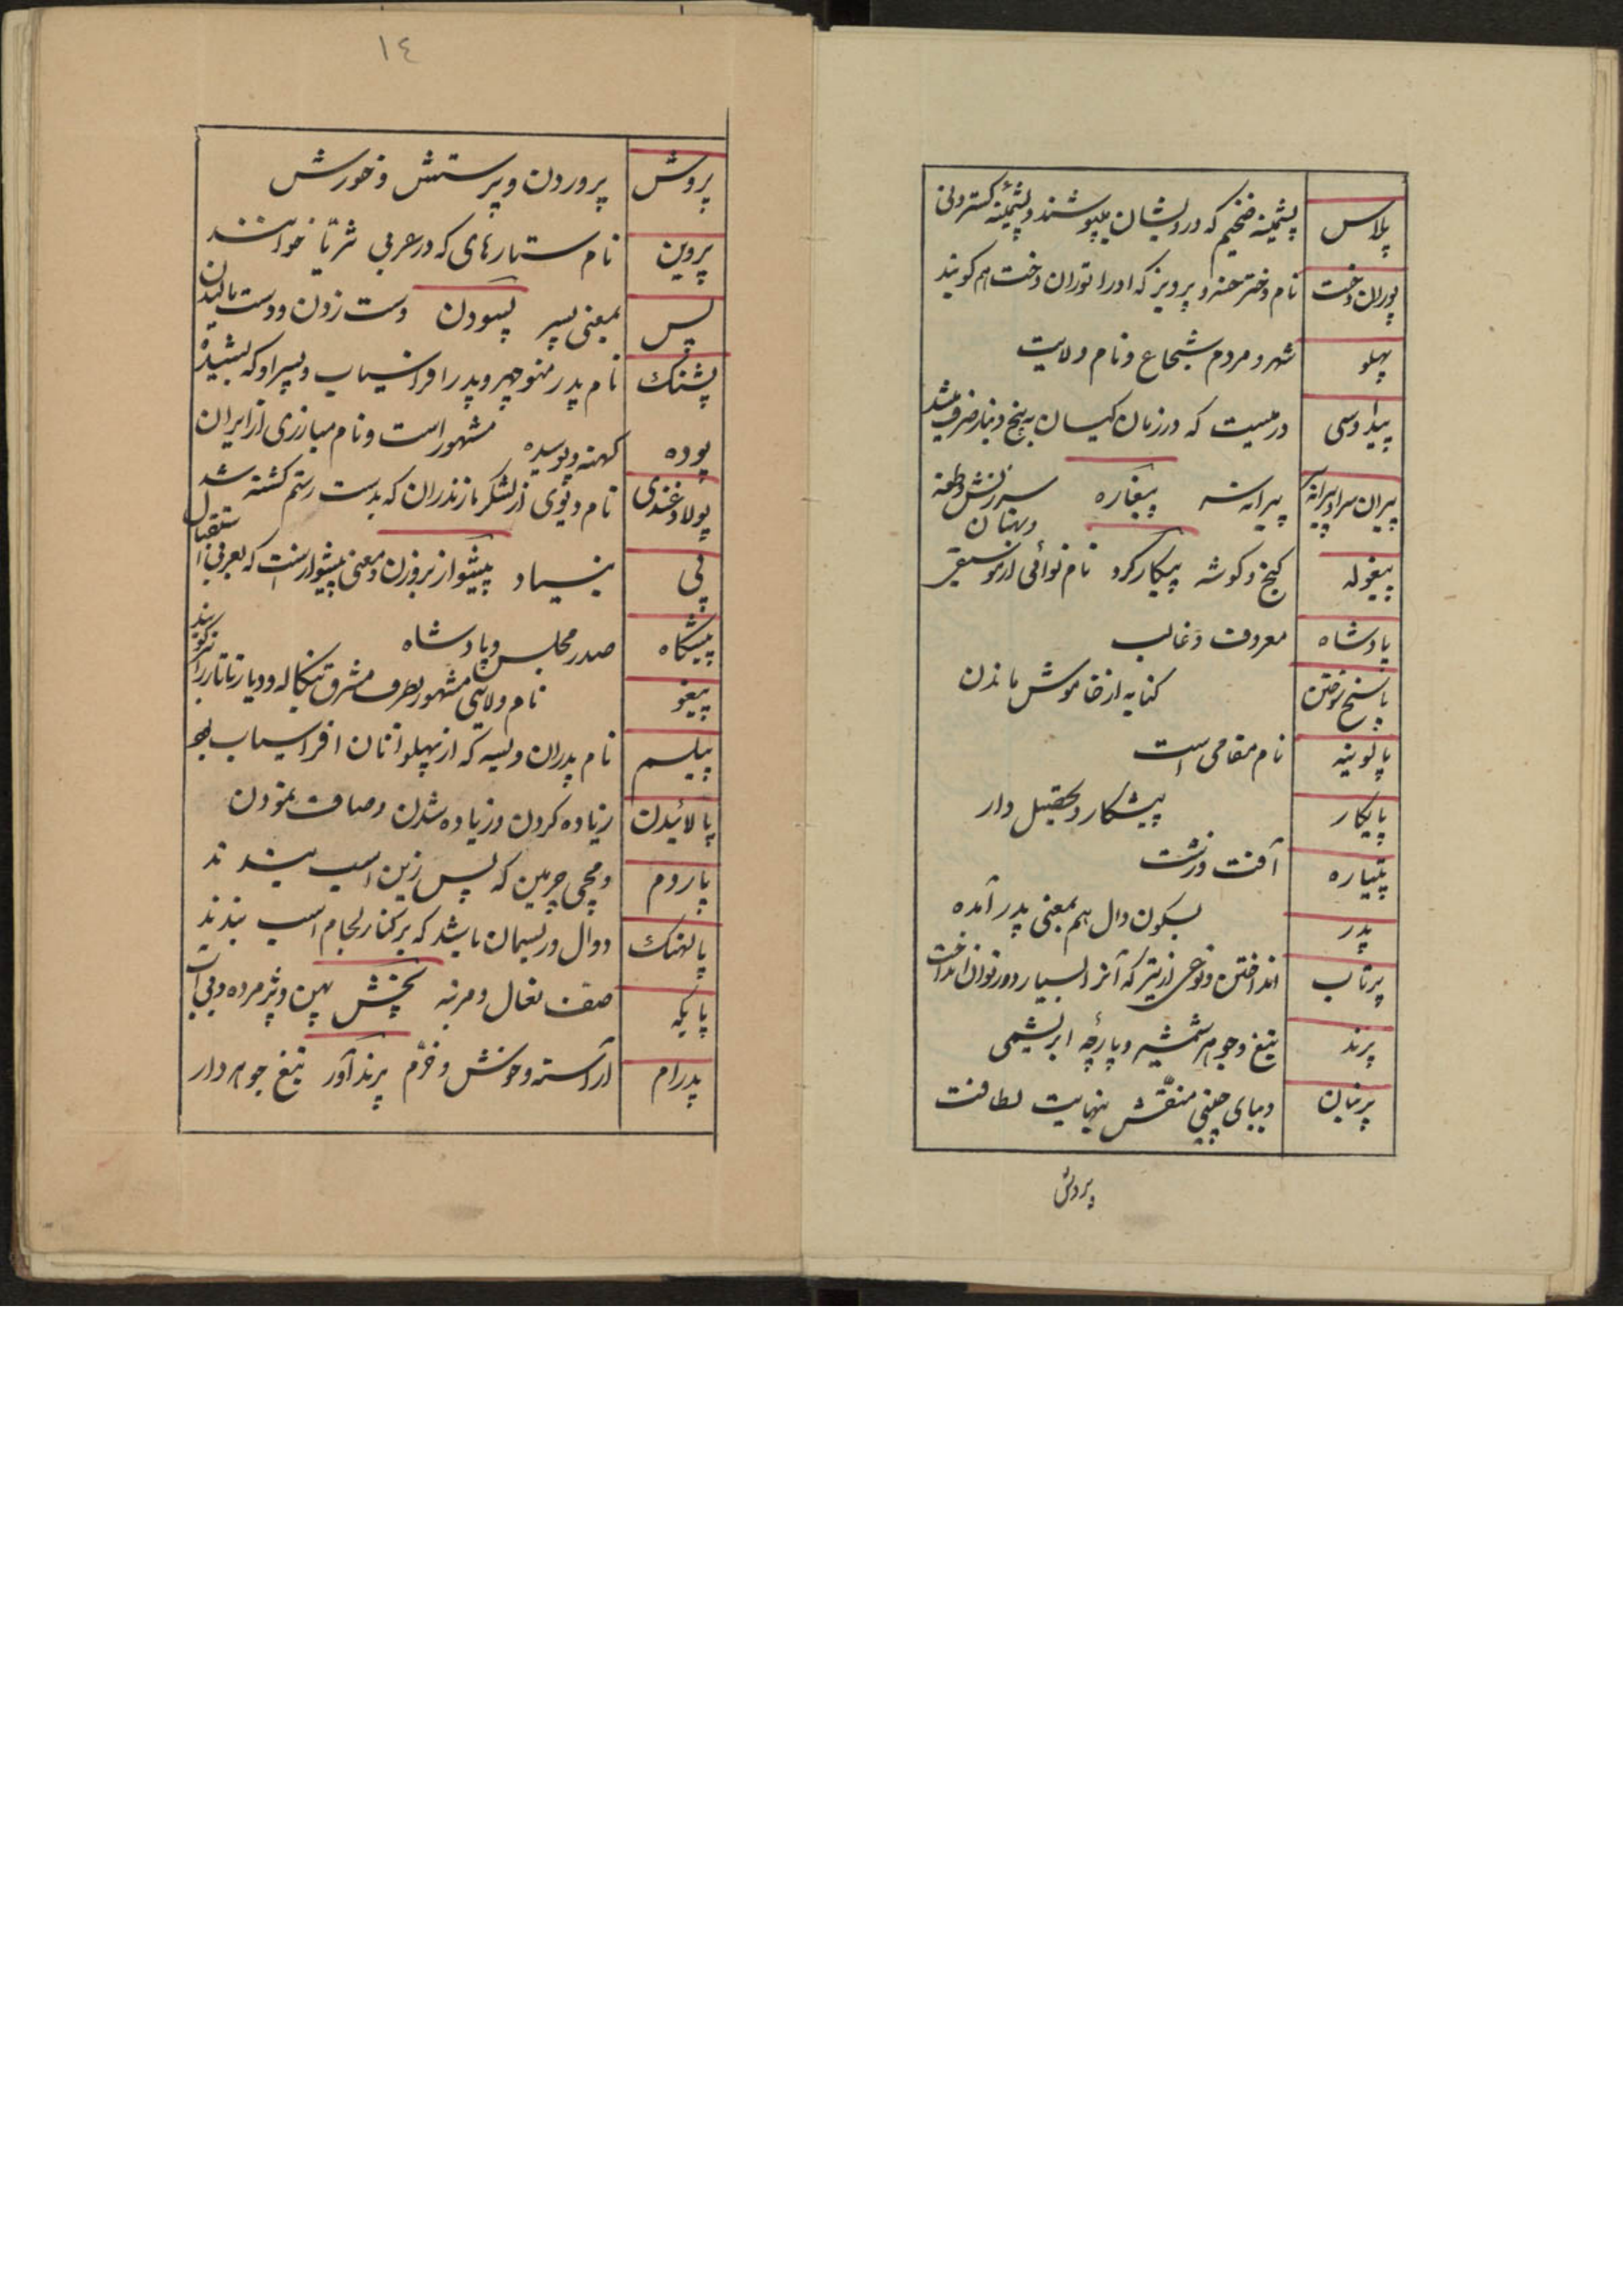 پلاس پشمینه ضخیم که درویشان پپوشند و پشمینهٔ گستردنی
پوران دخت نام دختر خسرو پرویز که او را توران دخت هم گویند
پهلو شهر و مردم شجاع و نام ولایت
پیداوسی درمیست که در زمان کیان به پنج دینار صرف میشد
پیران سر و پیرانه پیرانه سر پیغاره سرزنش و طعنه
و بهتان
پیغوله کنج و گوشه پیکارکرد نام نوائی از موسیقی
پادشاه معروف و غالب
پاسخ کنایه از خاموش ماندن
پالوینه نام مقامی است
پایکار پیشکار و تحصیل دار
پتیاره آفت و زشت
پدر بسکون دال هم بمعنی پدر آمده
پرتاب انداختن و نوعی از تیر که آنرا بسیار دور توان انداخت
پرند تیغ و جوهر شمشیر و پارچهٔ ابریشمی
پرنیان دیبای چینی منقّش بنهایت لطافت
پروش
١٤
پروش پروردن و پرستش و خورش
پروین نام ستارهای که در عربی ثریّا خوانند
پس بمعنی پسر پسودن دست زدن و دست مالیدن
پشنگ نام پدر منوچهر و پدر افراسیاب و پسر او که بشیده
مشهور است و نام مبارزی از ایران
پوده کهنه و پوسیده
پولادغندی نام دیوی از لشکر مازندران که بدست رستم کشته شد
پی بنیاد پیشواز بروزن و معنی پیشوار است که بعربی استقبال
پیشگاه صدر مجلس و پادشاه
پیغو نام ولایتی مشهور بطرف مشرق بنگاله و دیار تاتار را نیز گویند
پیلسم نام پدران ویسه که از پهلوانان افراسیاب بود
پالائیدن زیاده کردن و زیاده شدن و صاف نمودن
پاردم و مچی چرمین که پس زین اسب بندند
پالهنگ دوال و ریسمان باشد که بر کنار لجام اسب بندند
پایگه صف نعال و مرتبه پخش پهن و پژمرده و بی آب
پدرام آراسته و خوش و خرّم پرندآور تیغ جوهردار